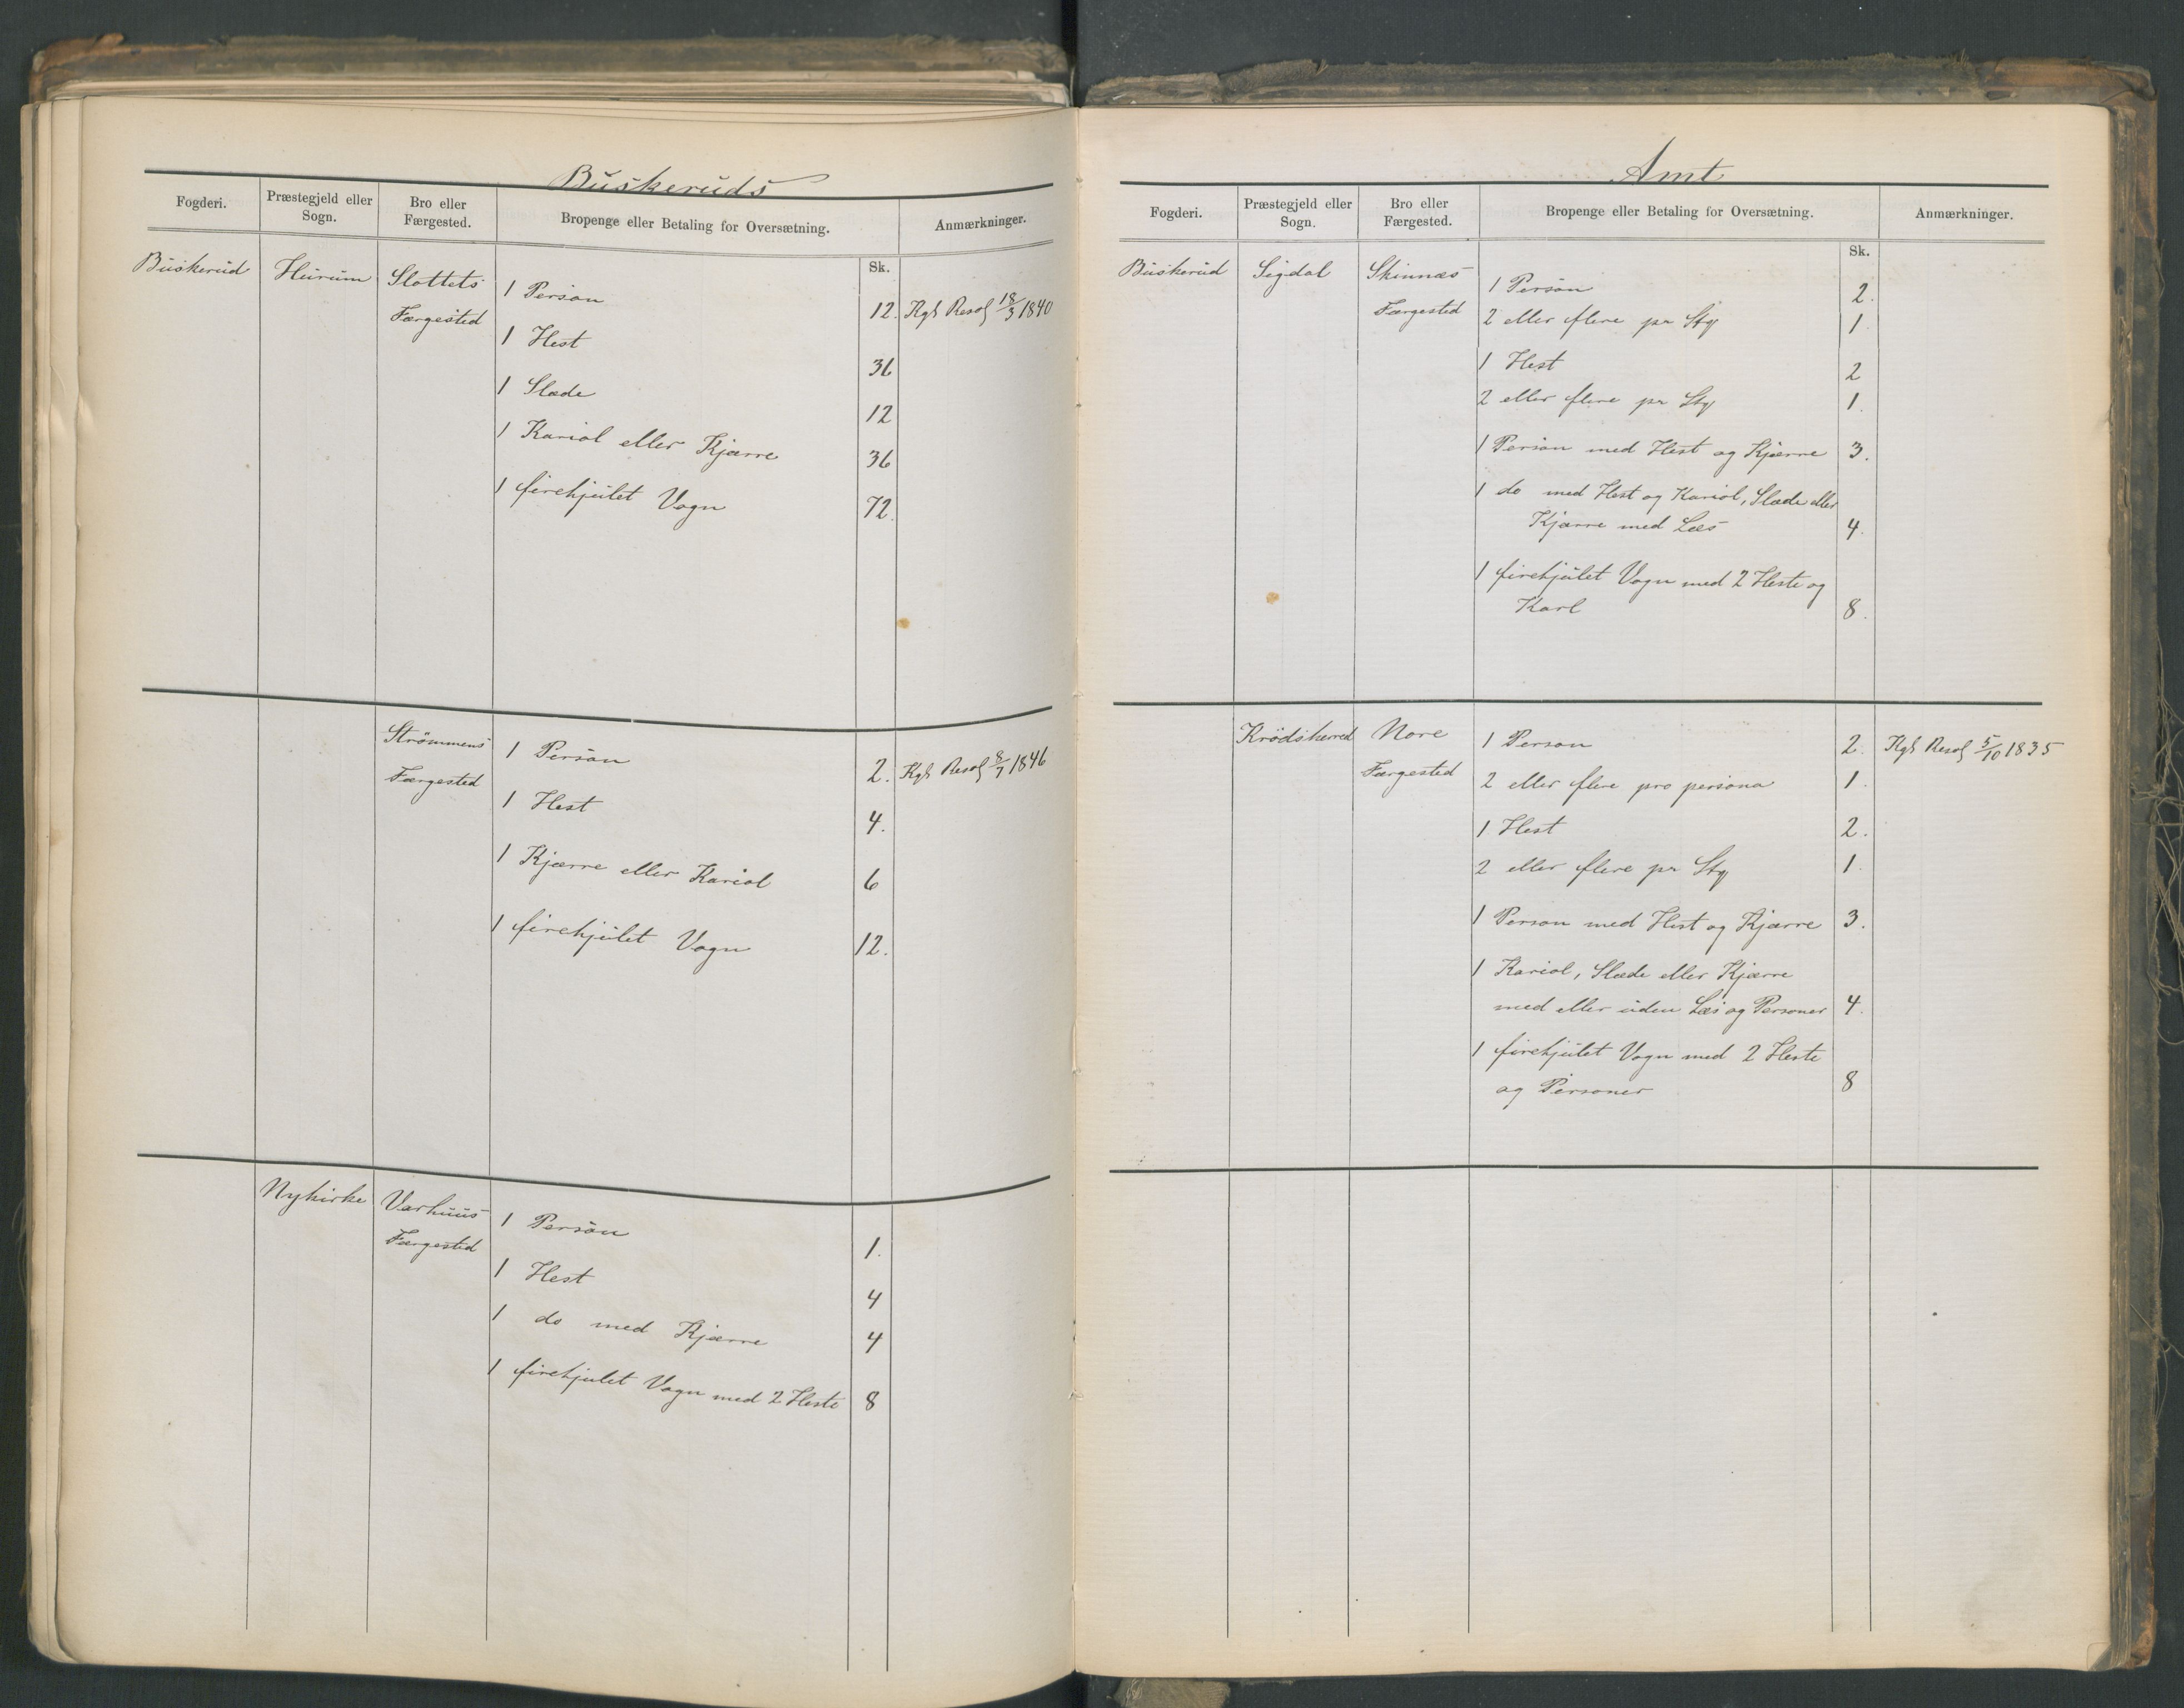 Buskeruds
Fogderi. Præstegjeld eller Sogn. Bro eller Færgested. Bropenge eller Betaling for Oversætning. Anmærkninger.
Sk.
Buskerud Hurum Slottets 1 Person 12. Kgl Resol 18/3 1840
Færgested 1 Hest 36
1 Slæde 12
1 Kariol eller Kjærre 36
1 firehjulet Vogn 72.
Strömmens 1 Person 2. Kgl Resol 8/7 1846
Færgested 1 Hest 4.
1 Kjærre eller Kariol 6
1 firehjulet Vogn 12.
Nykirke Varhuus 1 Person 1.
Færgested 1 Hest 4
1 do med Kjærre 4
1 firehjulet Vogn med 2 Heste 8
Amt
Fogderi. Præstegjeld eller Sogn. Bro eller Færgested. Bropenge eller Betaling for Oversætning. Anmærkninger.
Sk.
Buskerud Sigdal Skinnæs 1 Person 2.
Færgested 2 eller flere pr Stq 1.
1 Hest 2
2 eller flere pr Stq 1.
1 Person med Hest og Kjærre 3.
1 do med Hest og Kariol, Slæde eller
Kjærre med Læs 4.
1 firehjulet Vogn med 2 Heste og
Karl 8.
Krödsherred Nore 1 Person 2. Kgl Resol 5/10 1835
Færgested 2 eller flere pro persona 1.
1 Hest 2.
2 eller flere pr Stq 1.
1 Person med Hest og Kjærre 3.
1 Kariol, Slæde eller Kjærre
med eller uden Læs og Personer 4.
1 firehjulet Vogn med 2 Heste
og Personer 8